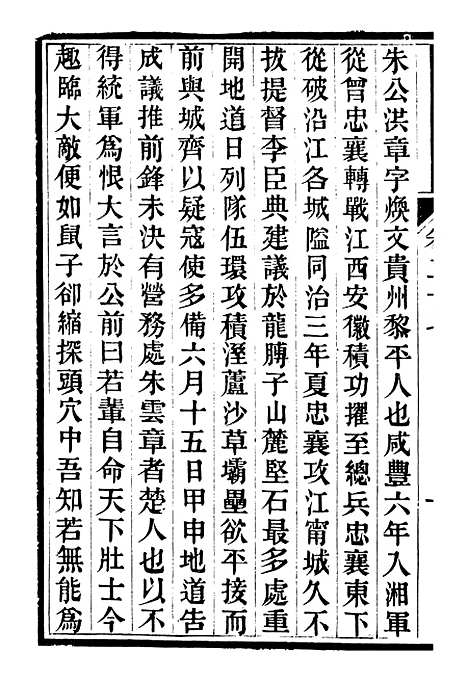 朱公洪章字煥文貴州黎平人也咸豐六年入湘軍
從曾忠襄轉戰江西安徽積功擢至總兵忠襄東下
從破沿江各城隘同治三年夏忠襄攻江甯城久不
拔提督李臣典建議於龍膊子山麓堅石最多處重
開地道日列隊伍環攻積溼蘆沙草壩壘欲平接而
前與城齊以疑寇使多備六月十五日甲申地道告
成議推前鋒未決有營務處朱雲章者楚人也以不
得統軍爲恨大言於公前曰若輩自命天下壯士今
趣臨大敵便如鼠子卻縮探頭穴中吾知若無能爲